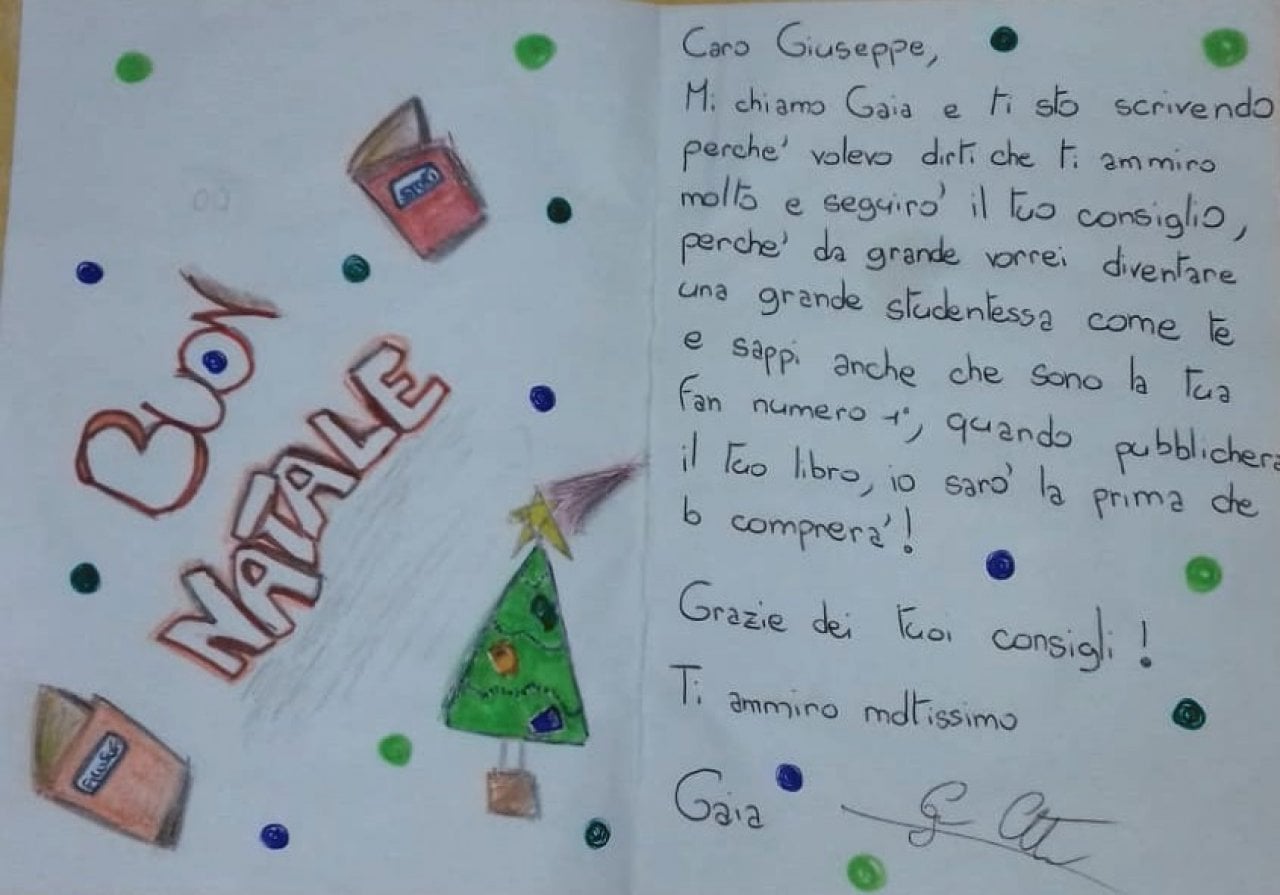 BUON
NATALE
Caro Giuseppe,
Mi chiamo Gaia e ti sto scrivendo
perche' volevo dirti che ti ammiro
molto e seguiro' il tuo consiglio,
perche' da grande vorrei diventare
una grande studentessa come te
e sappi anche che sono la tua
fan numero 1°, quando pubblichera
il tuo libro, io saro' la prima che
lo comprera'!
Grazie dei tuoi consigli!
Ti ammiro moltissimo
Gaia